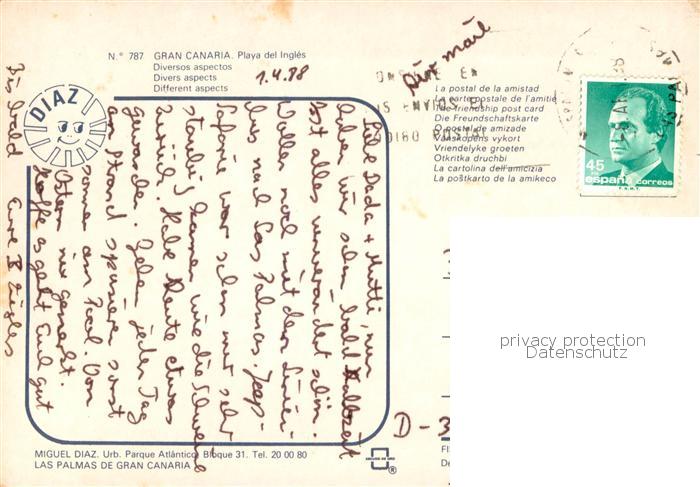 N.° 787 GRAN CANARIA. Playa del Inglés
Diversos aspectos
Divers aspects
Different aspects
1.4.88
Air mail
La postal de la amistad
La carte postale de l'amitie
The friendship post card
Die Freundschaftskarte
O postal de amizade
Vanskopens vykort
Vriendelyke groeten
Otkritka druchbi
La cartolina dell'amicizia
La poŝtkarto de la amikeco
45
PTA
españa correos
F.N.M.T.
DIAZ
Liebe Dada + Mutti, nun
haben wir schon bald Halbzeit
Ist alles unverändert schön.
Wollen mal mit dem Linien-
bus nach Las Palmas. Jeep-
Safarie war schön nur sehr
staubig kamen wie die Schweine
zurück. Habe Heute etwas
geworden. Gehen jeden Tag
am Strand spazieren sonst
sonnen am Pool. Von
Ostern nix gemerkt.
Hoffe es geht Euch gut
Bis bald Eure
D-3
privacy protection
Datenschutz
MIGUEL DIAZ. Urb. Parque Atlántico Bloque 31. Tel. 20 00 80
LAS PALMAS DE GRAN CANARIA
®